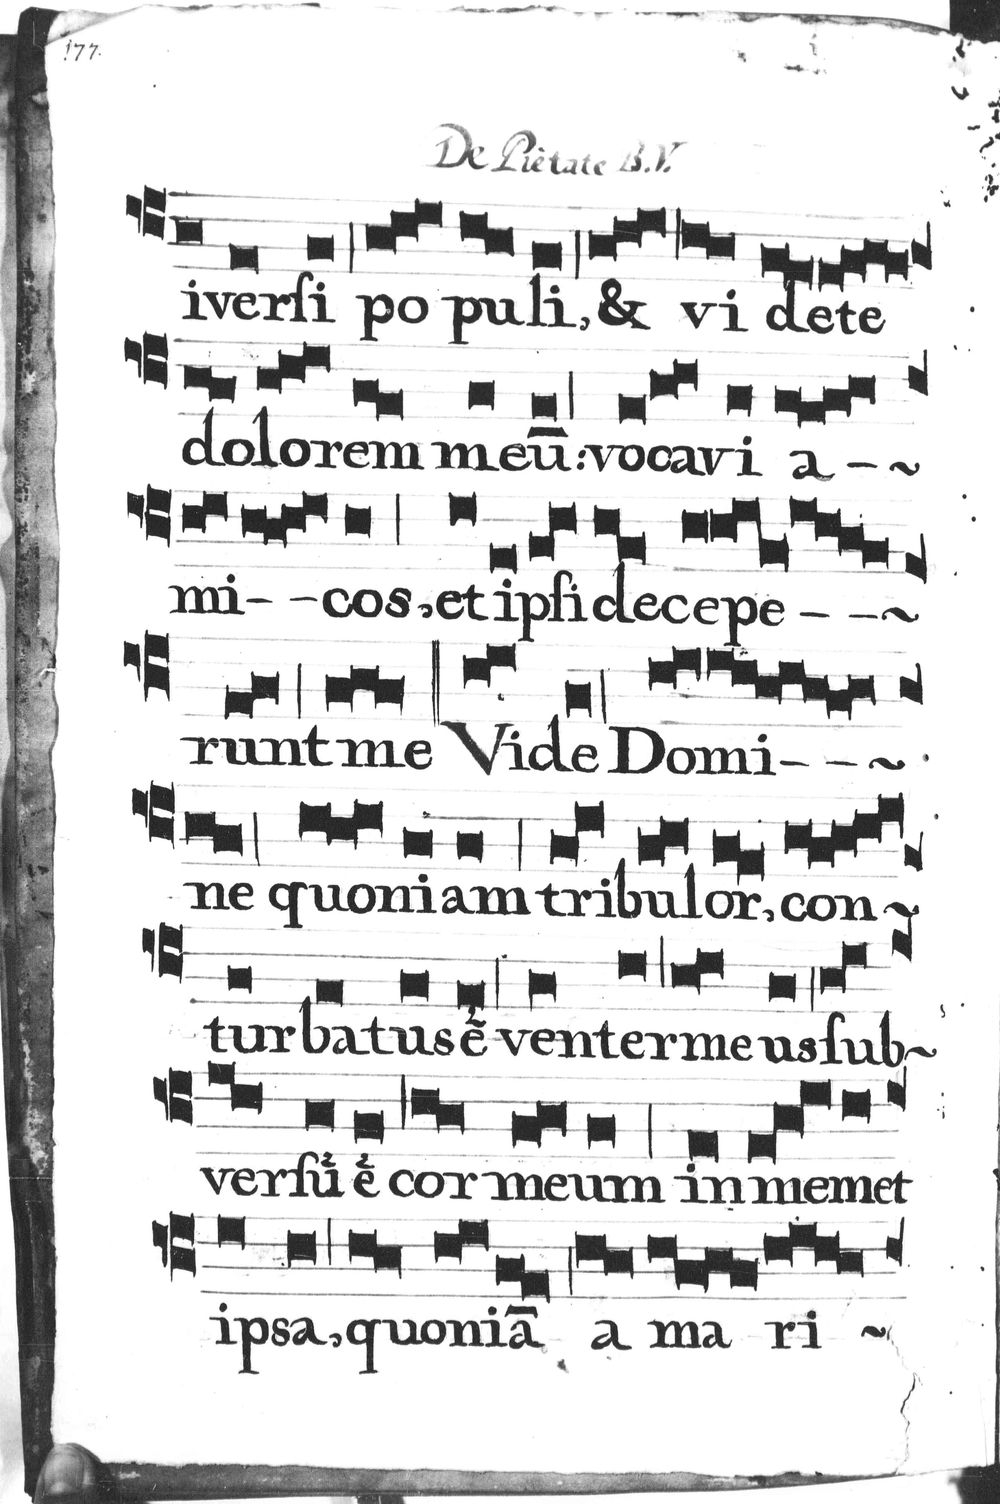 177.
De Piêtate B.V.
iverſi po puli, & vi dete
dolorem meū: vocavi a - ~
mi- - cos, et ipſi decepe - - ~
runt me Vide Domi- - ~
ne quoniam tribulor, con ~
turbatus ẽ venter meus ſub~
verſũ ẽ cor meum in memet
ipsa, quoniā a ma ri ~